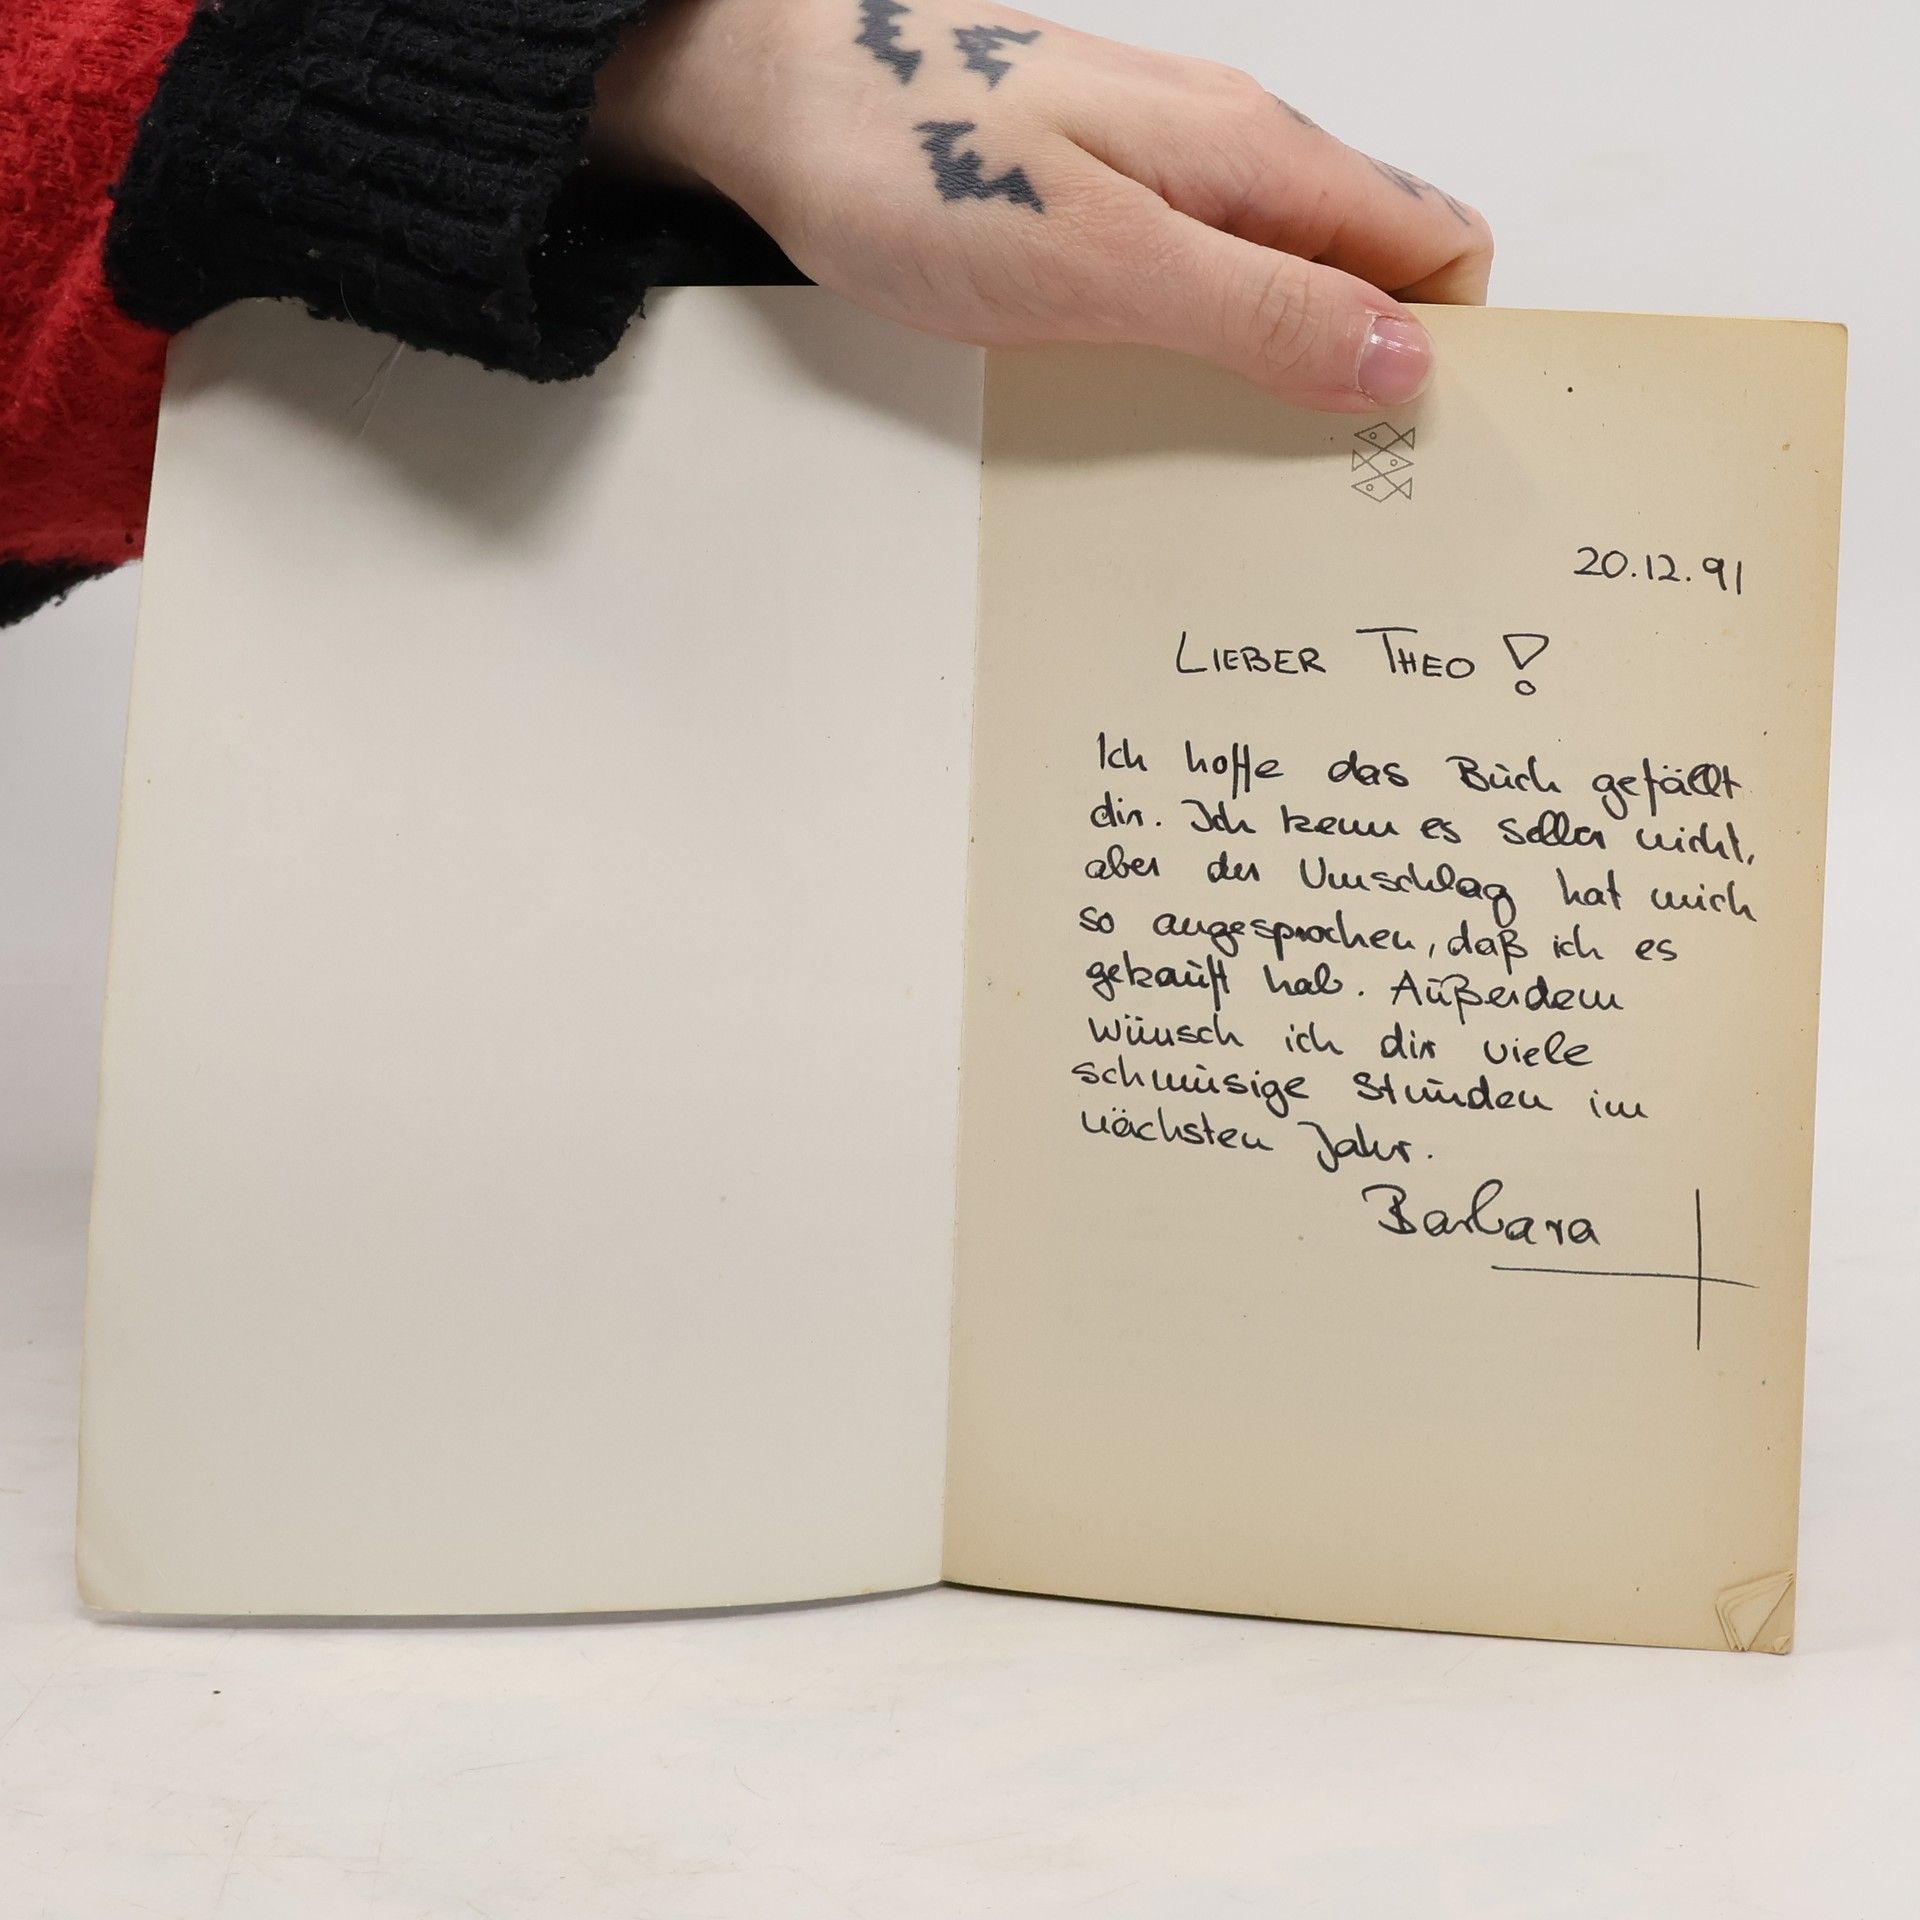 20.12.91
LIEBER THEO!
Ich hoffe das Buch gefällt
dir. Ich kenn es selber nicht,
aber der Umschlag hat mich
so angesprochen, daß ich es
gekauft hab. Außerdem
wünsch ich dir viele
schmusige Stunden im
nächsten Jahr.
Barbara